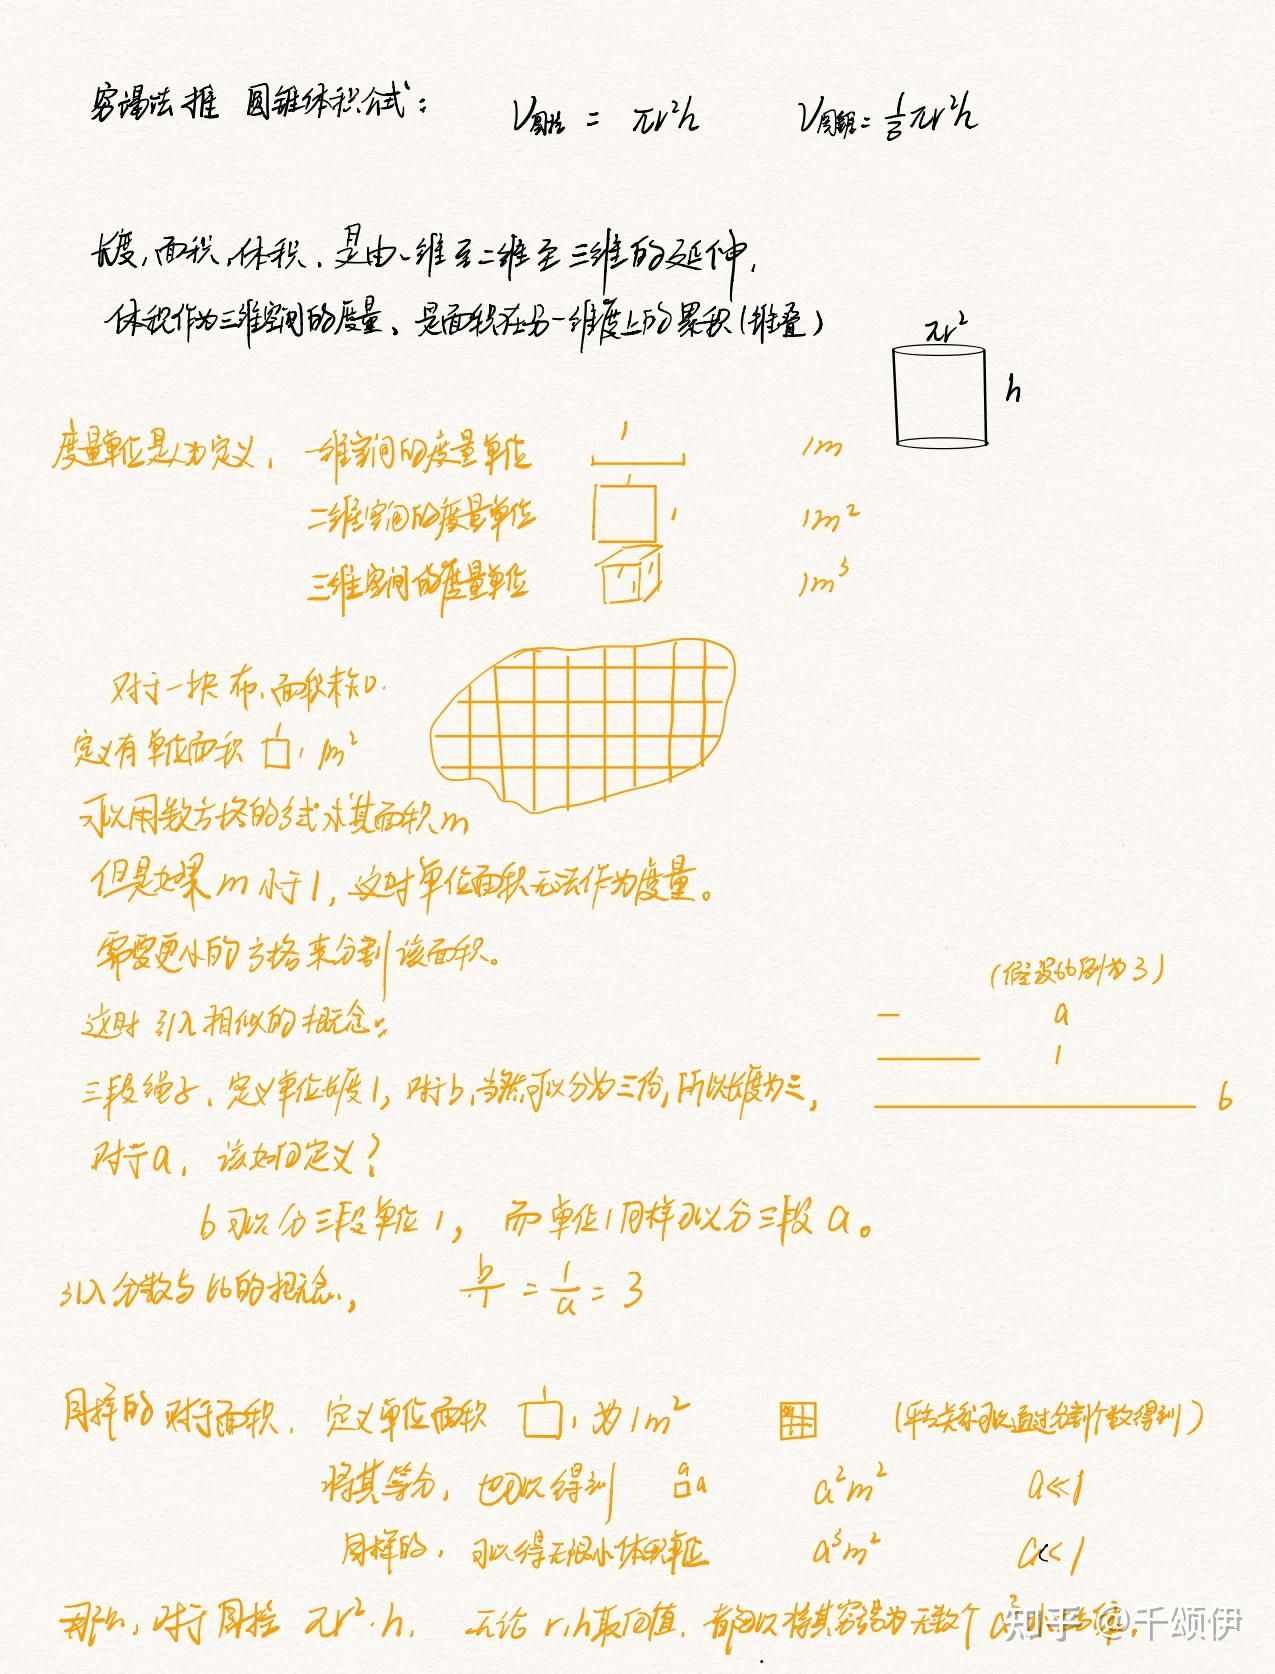 穷竭法推 圆锥体积公式：  V圆柱 = πr²h  V圆锥 = 1/3 πr²h
长度，面积，体积、是由一维至二维至三维的延伸，
体积作为三维空间的度量、是面积在另一维度上的累积（堆叠）
πr²
h
度量单位是人为定义，一维空间的度量单位  1  1m
二维空间的度量单位  1  1  1m²
三维空间的度量单位  1m³
对于一块布、面积未知.
定义有单位面积 1 1 1m²
可以用数方格的方式求其面积m
但是如果m小于1，这时单位面积无法作为度量。
需要更小的方格来分割该面积。
（假设比例为3）
这时引入相似的概念：  a
1
三段绳子、定义单位长度1，对于b，当然可以分为三份，所以长度为三，  b
对于a，该如何定义？
b可以分三段单位1，而单位1同样可以分三段a。
引入分数与比的概念，  b/1 = 1/a = 3
同样的对于面积、定义单位面积 1 1 为1m²  （平方关系可以通过分割个数得到）
将其等分，也可以得到 a a  a²m²  a≪1
同样的，可以得无限小体积单位  a³m²  a≪1
那么，对于圆柱 πr²·h，无论r,h取何值，都可以将其穷竭为无数个
知乎 @千颂伊